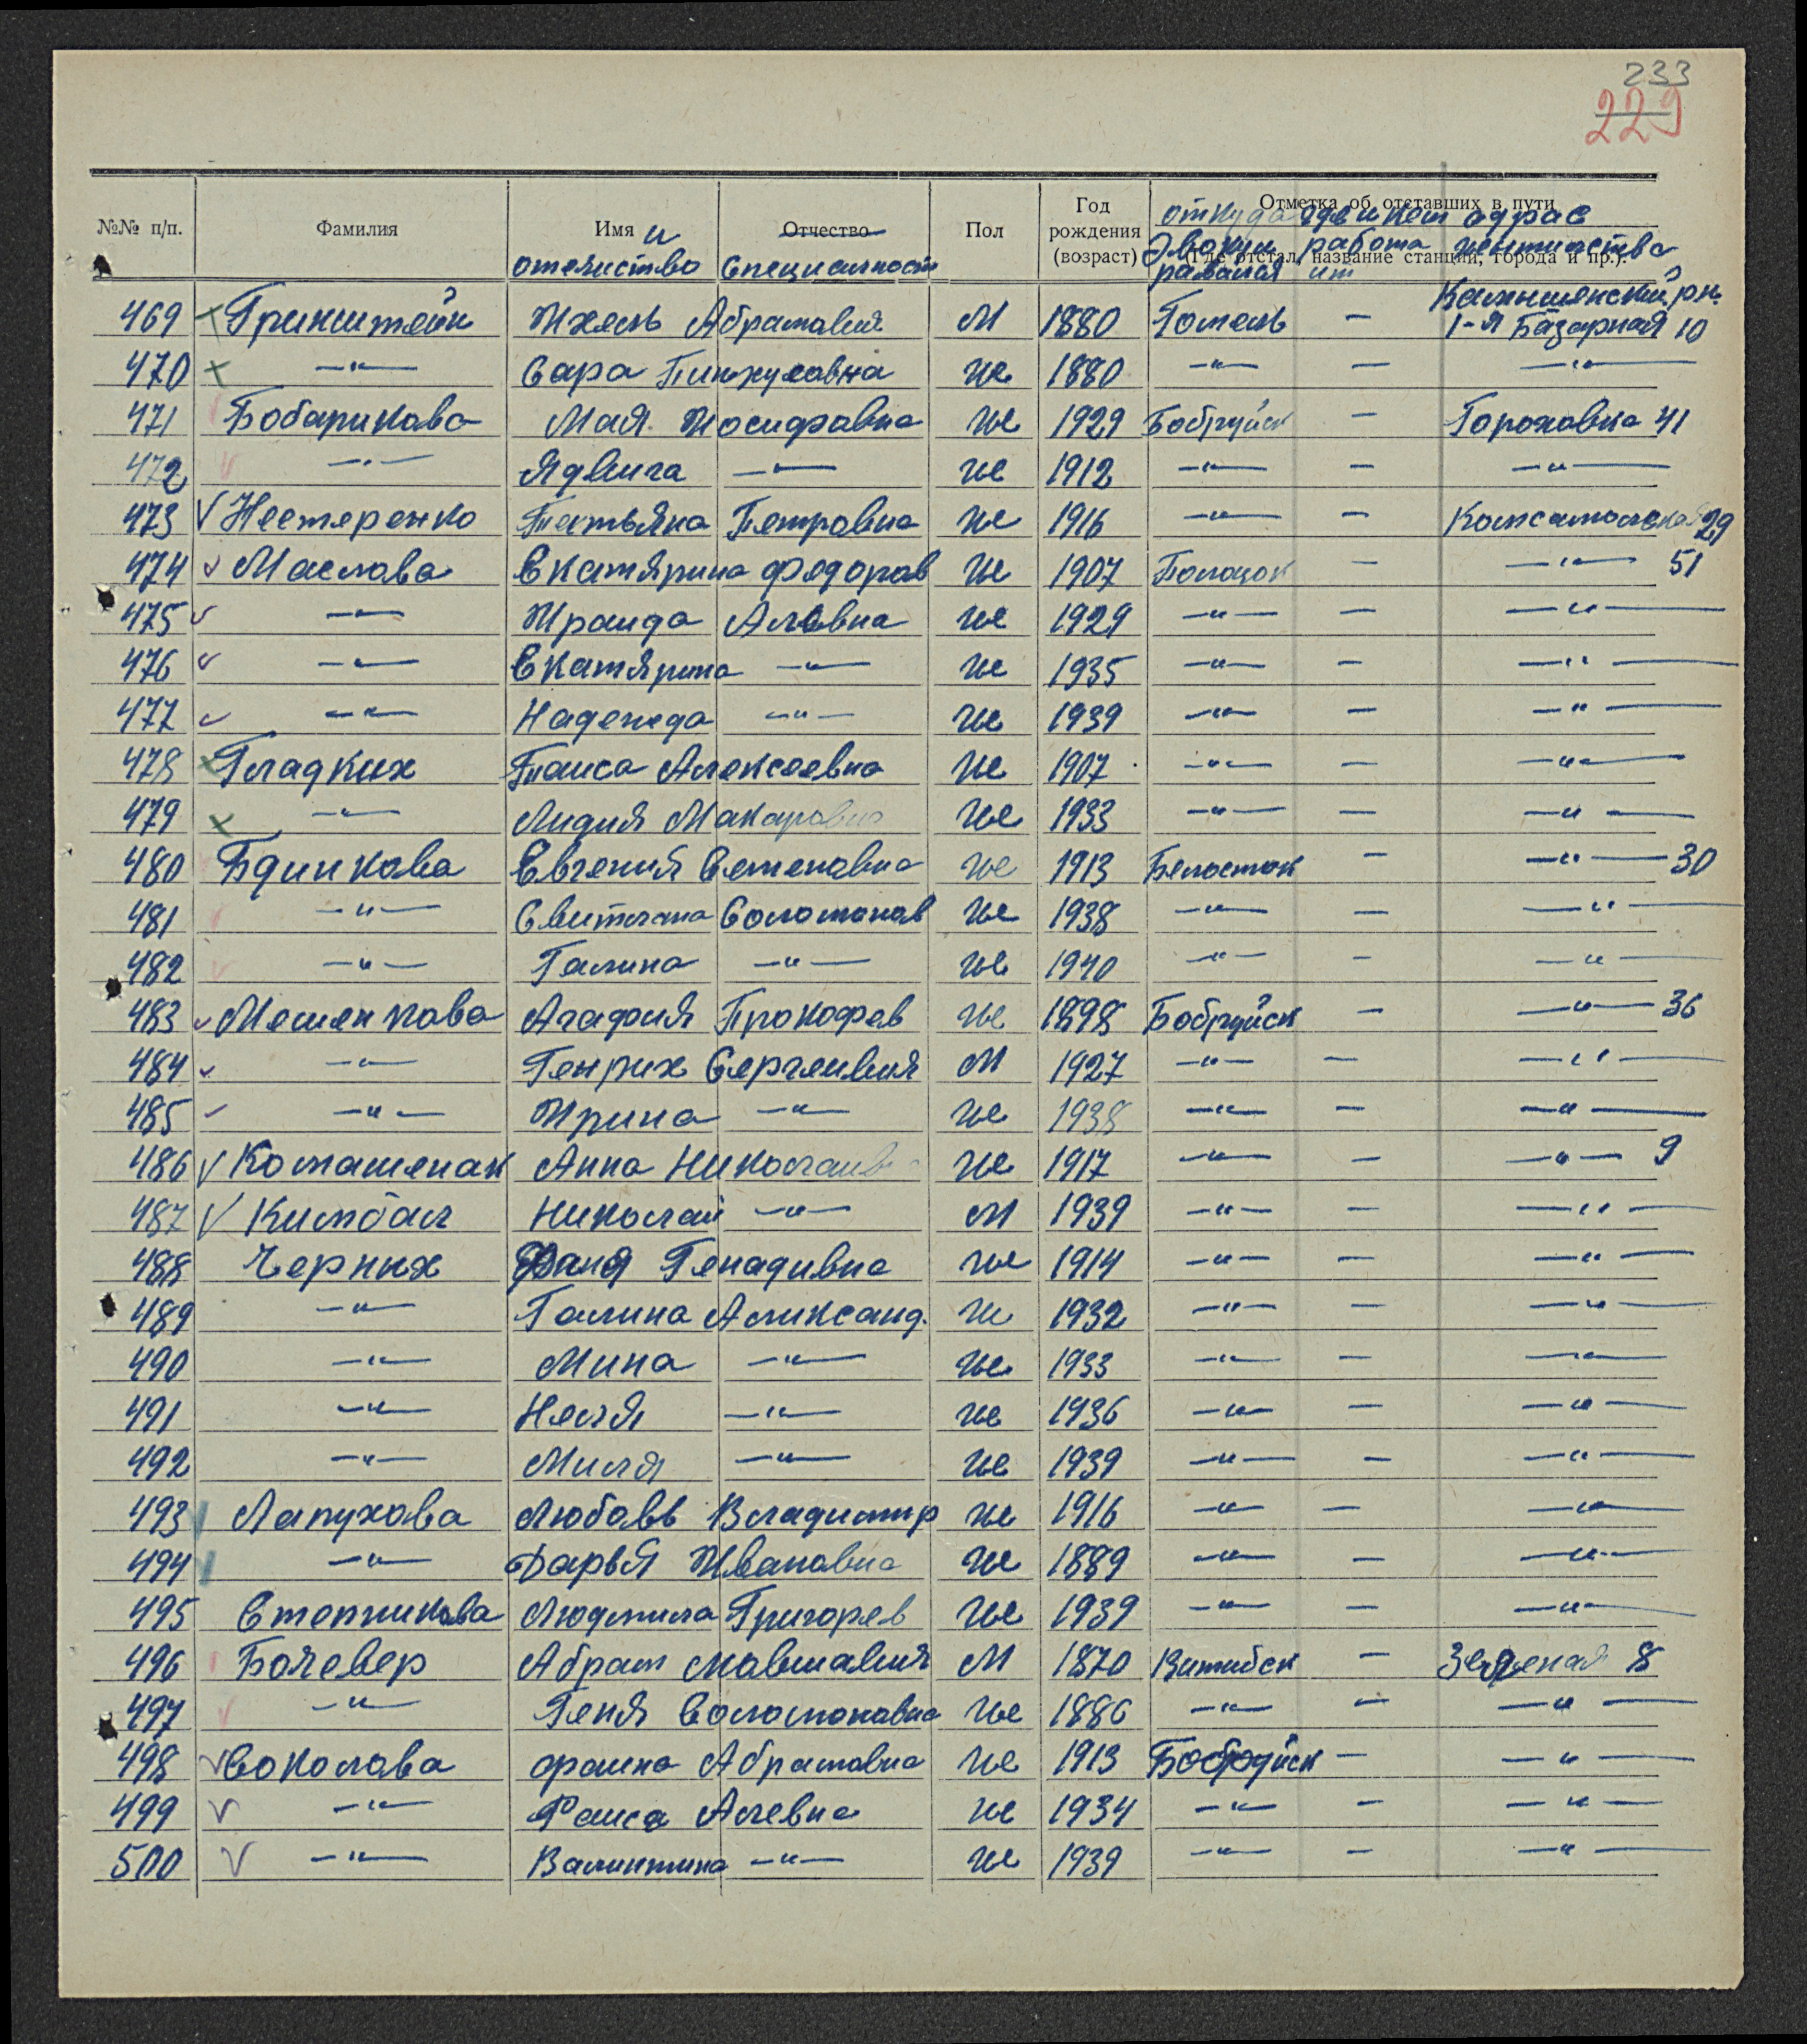 233
229
№№ п/п. Фамилия Имя и отечиство Отчество Специальност Пол Год рождения (возраст) Отметка об отставших в пути (Где отстал, название станции, города и пр.).
откуда эвакуировался где и кем работа адрас
Камышенский рн.
469 Гринштейн Абрамавич М 1880 Гомель — 1-я Базарная 10
470 —"— Сара Пинхусавна же 1880 —"— — —"—
471 Бобарикова Мая Иосифавна же 1929 Бобруйск — Гороховка 41
472 —"— Ядвига —"— же 1912 —"— — —"—
473 Нестеренко Татьяна Петровна же 1916 —"— — Комсамольская 29
474 Маслова Екатярина Федоров же 1907 Полоцк — —"— 51
475 —"— Ираида Алевна же 1929 —"— — —"—
476 —"— Екатярина —"— же 1935 —"— — —"—
477 —"— Надежда —"— же 1939 —"— — —"—
478 Гладких Таиса Алексеевна же 1907 —"— — —"—
479 —"— Лидия Макаровна же 1933 —"— — —"—
480 Бдинкова Евгения Семенавна же 1913 Белосток — —"— 30
481 —"— Свитлана Соломонав же 1938 —"— — —"—
482 —"— Галина —"— же 1940 —"— — —"—
483 Мешенкова Агафия Прокофев же 1898 Бобруйск — —"— 36
484 —"— Генрих Сергеивич М 1927 —"— — —"—
485 —"— Ирина —"— же 1938 —"— — —"—
486 Анна Николаив же 1917 —"— — —"— 9
487 Николай —"— М 1939 —"— — —"—
488 Черних Фаня Генадивна же 1914 —"— — —"—
489 —"— Галина Аликсанд. же 1932 —"— — —"—
490 —"— Мина —"— же 1933 —"— — —"—
491 —"— Неля —"— же 1936 —"— — —"—
492 —"— Миля —"— же 1939 —"— — —"—
493 Лапухова Любовь Владимир же 1916 —"— — —"—
494 —"— Дарья Ивановна же 1889 —"— — —"—
495 Людмила Григорев же 1939 —"— — —"—
496 Бочевер Абрам Мавшавич М 1870 Витибск — Зеленая 8
497 —"— Геня Соломонавна же 1886 —"— — —"—
498 Соколова фаина Абрамовна же 1913 Бобруйск — —"—
499 —"— Раиса Алевна же 1934 —"— — —"—
500 —"— Валинтина —"— же 1939 —"— — —"—